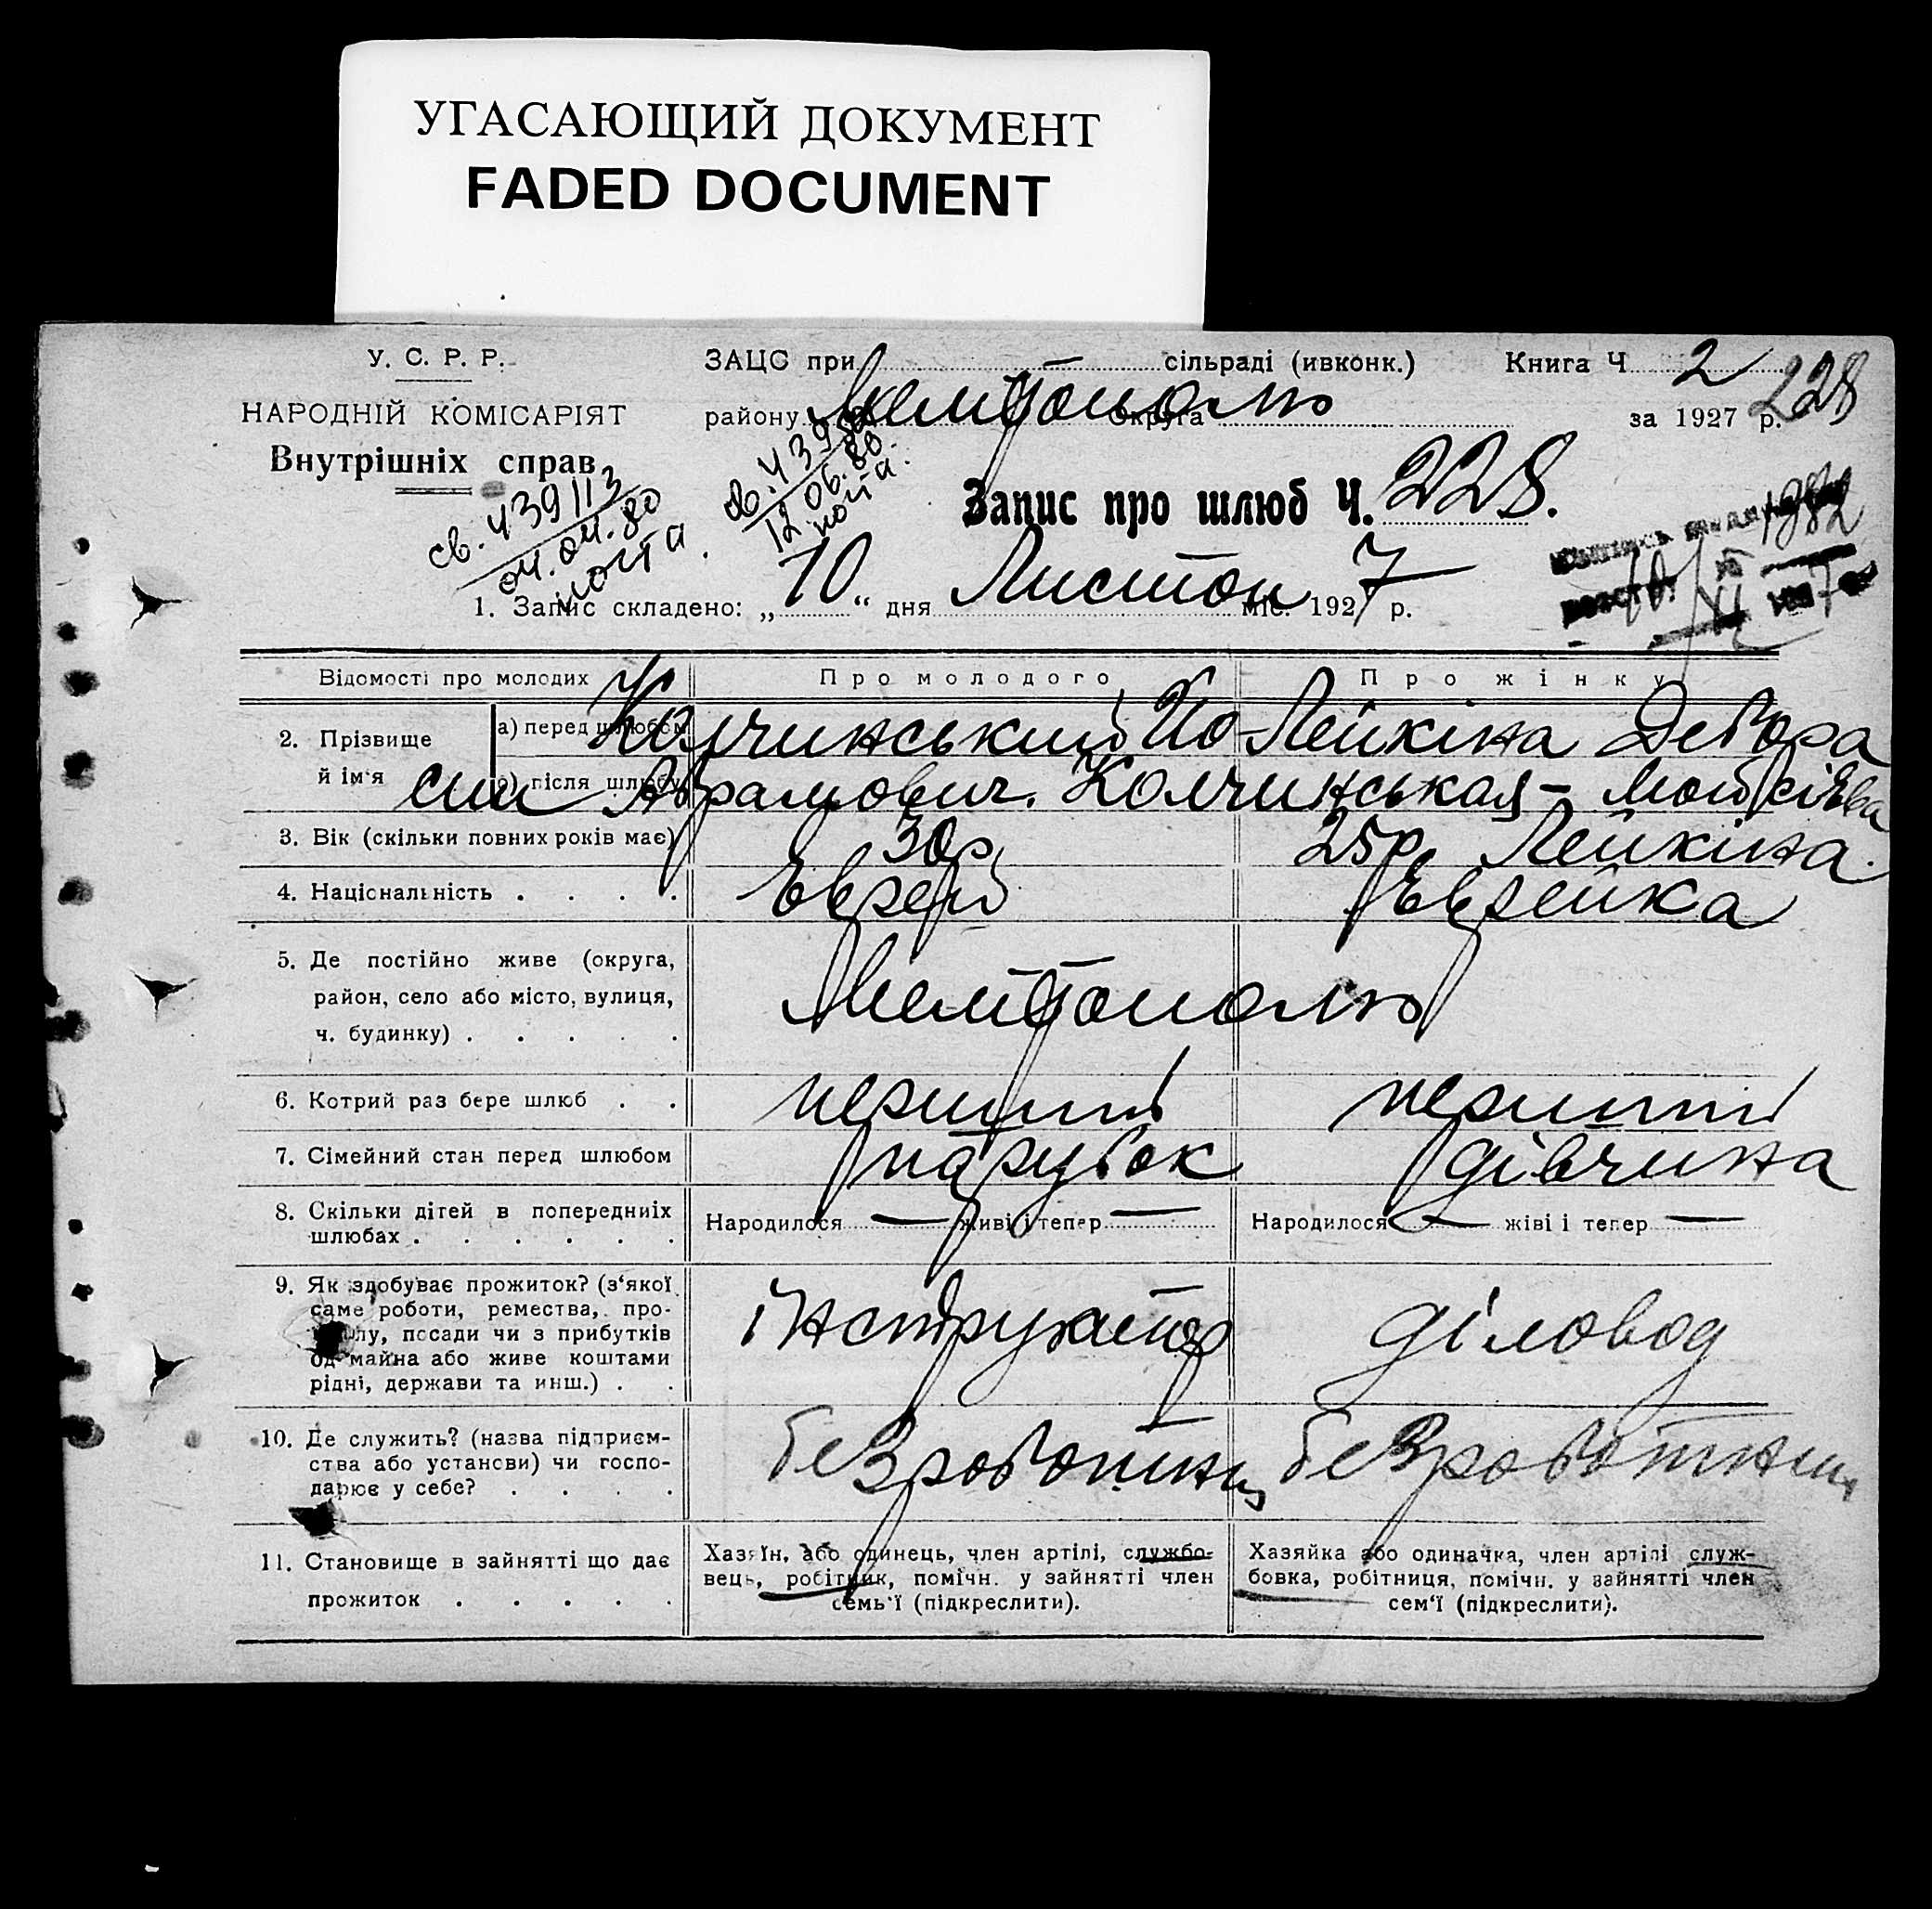 УГАСАЮЩИЙ ДОКУМЕНТ
FADED DOCUMENT
У. С. Р. Р.
НАРОДНІЙ КОМІСАРІЯТ
Внутрішніх справ
ЗАЦС при — сільраді (ивконк.) Книга Ч 2
району Мелітополь округа за 1927 р.
228
св. 439113
04.04.80
почта.
12.06.80
почта.
Запис про шлюб Ч. 228.
1982
1. Запис складено: „ 10 “ дня Листоп міс. 1927 р.
Відомості про молодих Про молодого Про жінку
2. Прізвище й ім‘я
а) перед шлюбом Колчинський Йо- Лейкіна Дебора
б) після шлюбу сип Абрамович. Колчинськая- Мойсієвна
Лейкіна.
3. Вік (скільки повних років має) 30р. 25р.
4. Національність . . . . Еврей Еврейка
5. Де постійно живе (округа,
район, село або місто, вулиця,
ч. будинку) . . . . .
Мелітополь
6. Котрий раз бере шлюб . . перший перший
7. Сімейний стан перед шлюбом парубок дівчина
8. Скільки дітей в попередниіх
шлюбах . . . . . .
Народилося — живі і тепер — Народилося — жіві і тепер —
9. Як здобуває прожиток? (з‘якої
саме роботи, ремества, про-
лу, посади чи з прибутків
од майна або живе коштами
рідні, держави та инш.) . .
інструктор діловод
10. Де служить? (назва підприєм-
ства або установи) чи госпо-
дарює у себе? . . . .
безработный безработный
11. Становище в зайнятті що дає
прожиток . . . . .
Хазяїн, або одинець, член артілі, службо-
вець, робітник, помічн. у зайнятті член
семь'ї (підкреслити).
Хазяйка або одиначка, член артілі служ-
бовка, робітниця, помічн. у зайнятті член
сем‘ї (підкреслити).